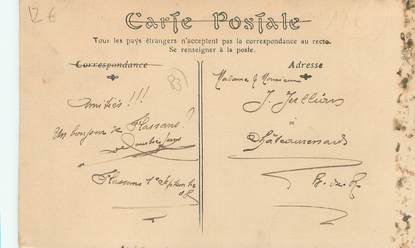 12 €
Carte Postale
Tous les pays étrangers n'acceptent pas la correspondance au recto.
Se renseigner à la poste.
Correspondance
Adresse
83
Madame & Monsieur
J. Jullian
à
Châteaurenard
B. du R.
Amitiés!!!
Un bonjour de Flassans!
Flassans 1er Septembre